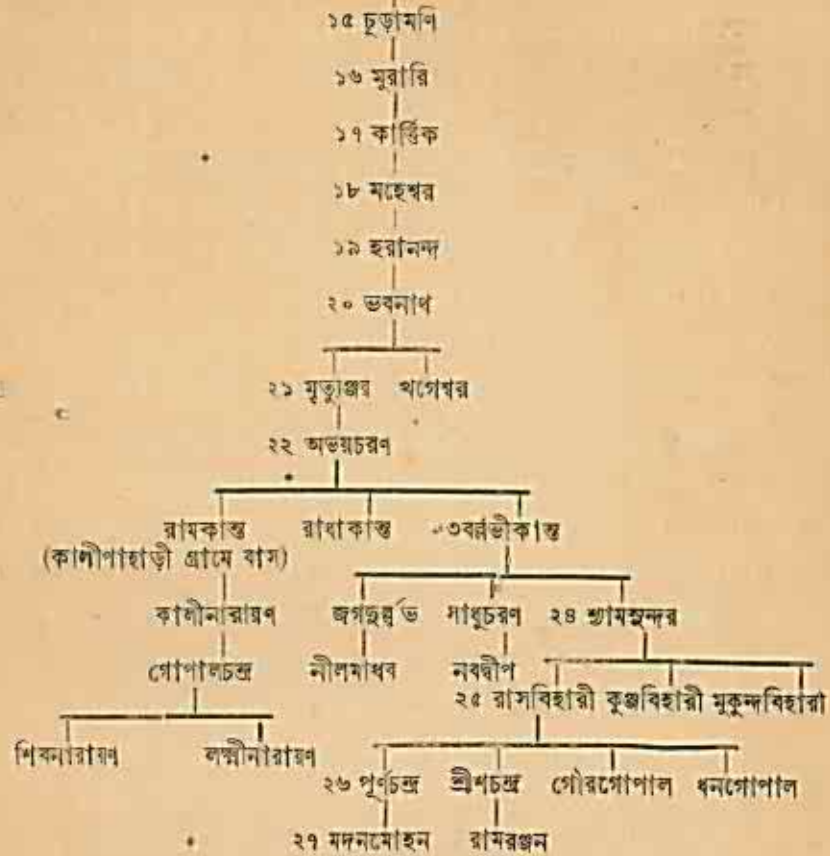 ১৫ চূড়ামণি
১৬ মুরারি
১৭ কার্ত্তিক
১৮ মহেশ্বর
১৯ হরানন্দ
২০ ভবনাথ
২১ মৃত্যুঞ্জয় খগেশ্বর
২২ অভয়চরণ
রামকান্ত রাধাকান্ত ২৩বল্লভীকান্ত
(কালীপাহাড়ী গ্রামে বাস)
কালীনারায়ণ জগদ্দুর্ল্লভ সাধুচরণ ২৪ শ্যামসুন্দর
গোপালচন্দ্র নীলমাধব নবদ্বীপ
২৫ রাসবিহারী কুঞ্জবিহারী মুকুন্দবিহারী
শিবনারায়ণ লক্ষ্মীনারায়ণ
২৬ পূর্ণচন্দ্র শ্রীশচন্দ্র গৌরগোপাল ধনগোপাল
২৭ মদনমোহন রামরঞ্জন